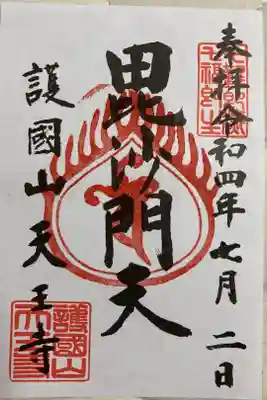 奉拝 令和四年 七月 二日
毘沙門天
護國山天王寺
護國山
天王寺